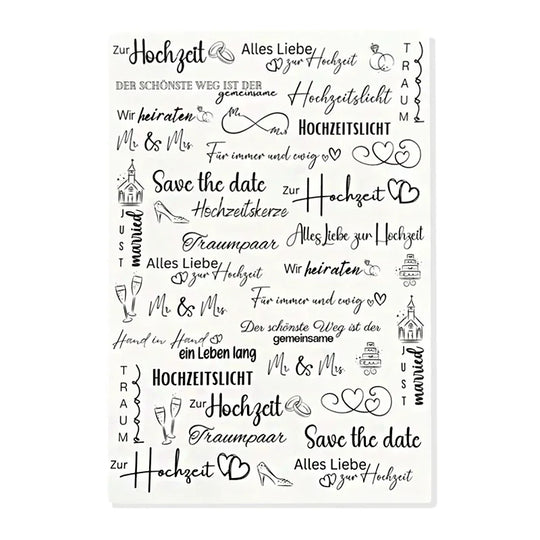 Zur Hochzeit
Alles Liebe
zur Hochzeit
TRAUM
DER SCHÖNSTE WEG IST DER
gemeinsame
Hochzeitslicht
Wir heiraten
Mr. Mrs.
HOCHZEITSLICHT
Mr. & Mrs.
Für immer und ewig
Save the date
Zur Hochzeit
JUST married
Hochzeitskerze
Traumpaar
Alles Liebe zur Hochzeit
Alles Liebe
zur Hochzeit
Wir heiraten
Mr. & Mrs.
Für immer und ewig
Der schönste Weg ist der
gemeinsame
Hand in Hand
ein Leben lang
Mr. & Mrs.
JUST married
TRAUM
HOCHZEITSLICHT
Zur Hochzeit
Traumpaar
Save the date
Zur Hochzeit
Alles Liebe
zur Hochzeit